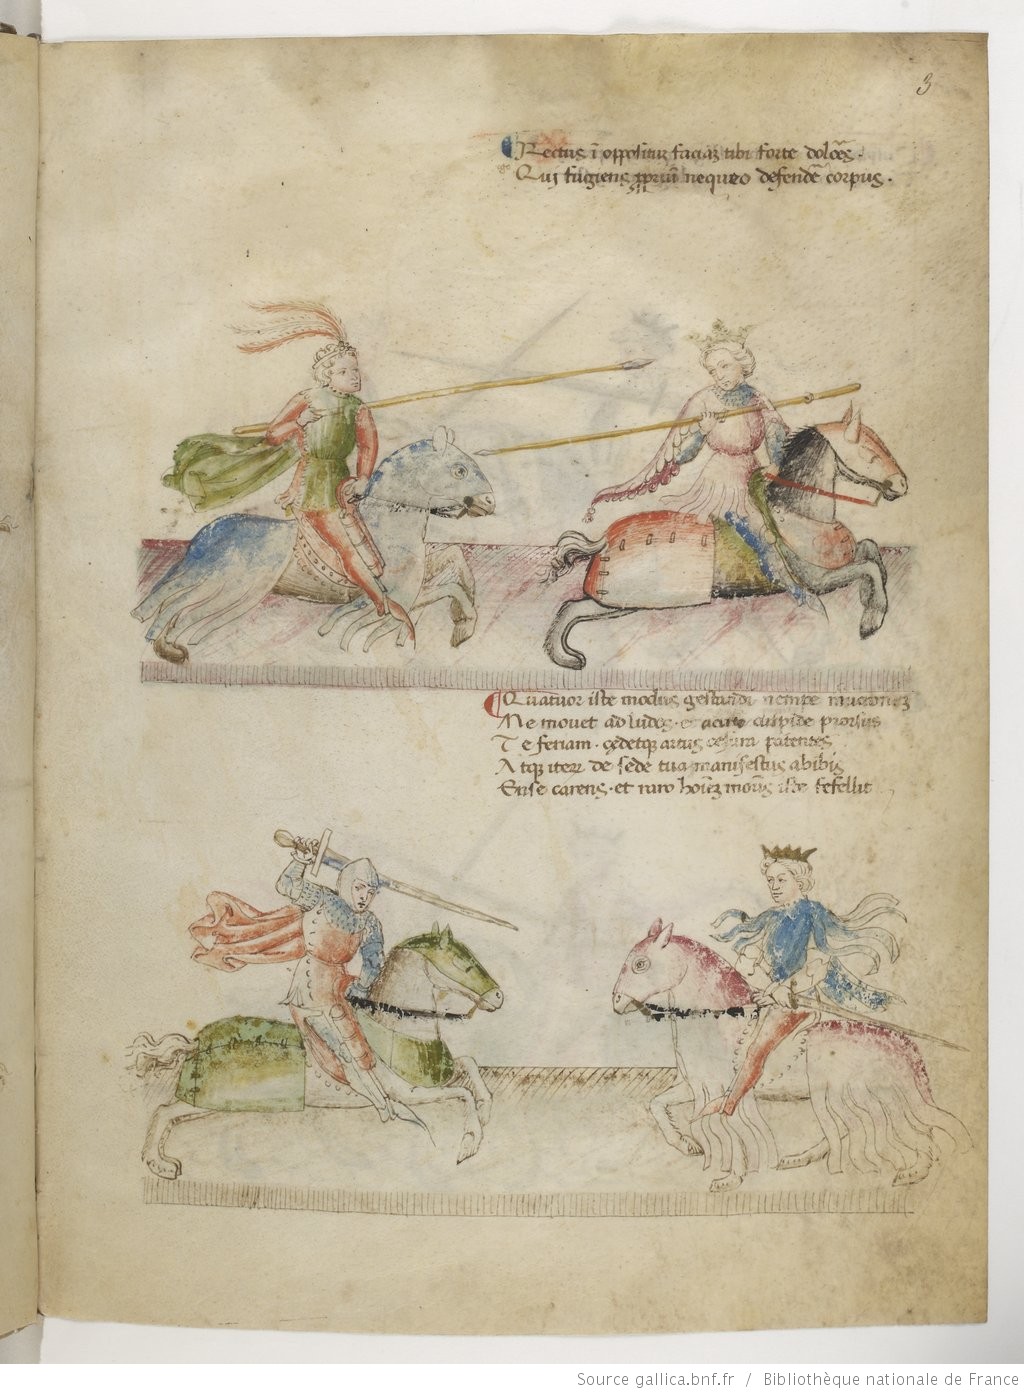 3
Rectus ī oppositum faciaꝫ tibi forte dolōes.
Qui fugiens ꝓpriū nequeo defendē corpus.
Quatuor iste modus gestandi nempe mucronem
Me movet ad ludos. et acuto cuspide prorsus
Te feriam. cedetqꝫ artus cesura patentes
Atqꝫ iteꝝ de sede tua manifestus abibis
Ense carens. et raro hoīeꝫ moris iste fefellit
Source gallica.bnf.fr / Bibliothèque nationale de France